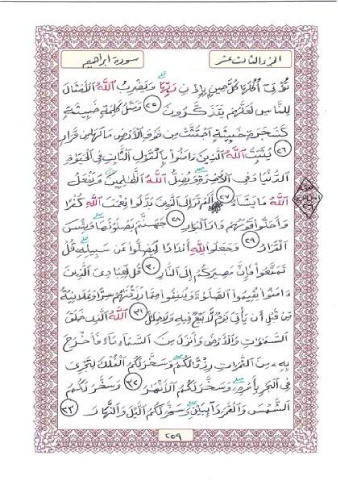 الجزء الثالث عشر
سورة ابراهيم
تؤتي أكلها كل حين بإذن ربها ويضرب الله الأمثال
للناس لعلهم يتذكرون ٢٥ ومثل كلمة خبيثة
كشجرة خبيثة اجتثت من فوق الأرض ما لها من قرار
٢٦ يثبت الله الذين ءامنوا بالقول الثابت في الحيوة
الدنيا وفي الءاخرة ويضل الله الظلمين ويفعل
الله ما يشاء ٢٧ ألم تر إلى الذين بدلوا نعمت الله كفرا
وأحلوا قومهم دار البوار ٢٨ جهنم يصلونها وبئس
القرار ٢٩ وجعلوا لله أندادا ليضلوا عن سبيله قل
تمتعوا فإن مصيركم إلى النار ٣٠ قل لعبادي الذين
ءامنوا يقيموا الصلوة وينفقوا مما رزقنهم سرا وعلانية
من قبل أن يأتي يوم لا بيع فيه ولا خلل ٣١ الله الذي خلق
السموت والأرض وأنزل من السماء ماء فأخرج
به من الثمرات رزقا لكم وسخر لكم الفلك لتجري
في البحر بأمره وسخر لكم الأنهر ٣٢ وسخر لكم
الشمس والقمر دائبين وسخر لكم اليل والنهار ٣٣
٢٥٩